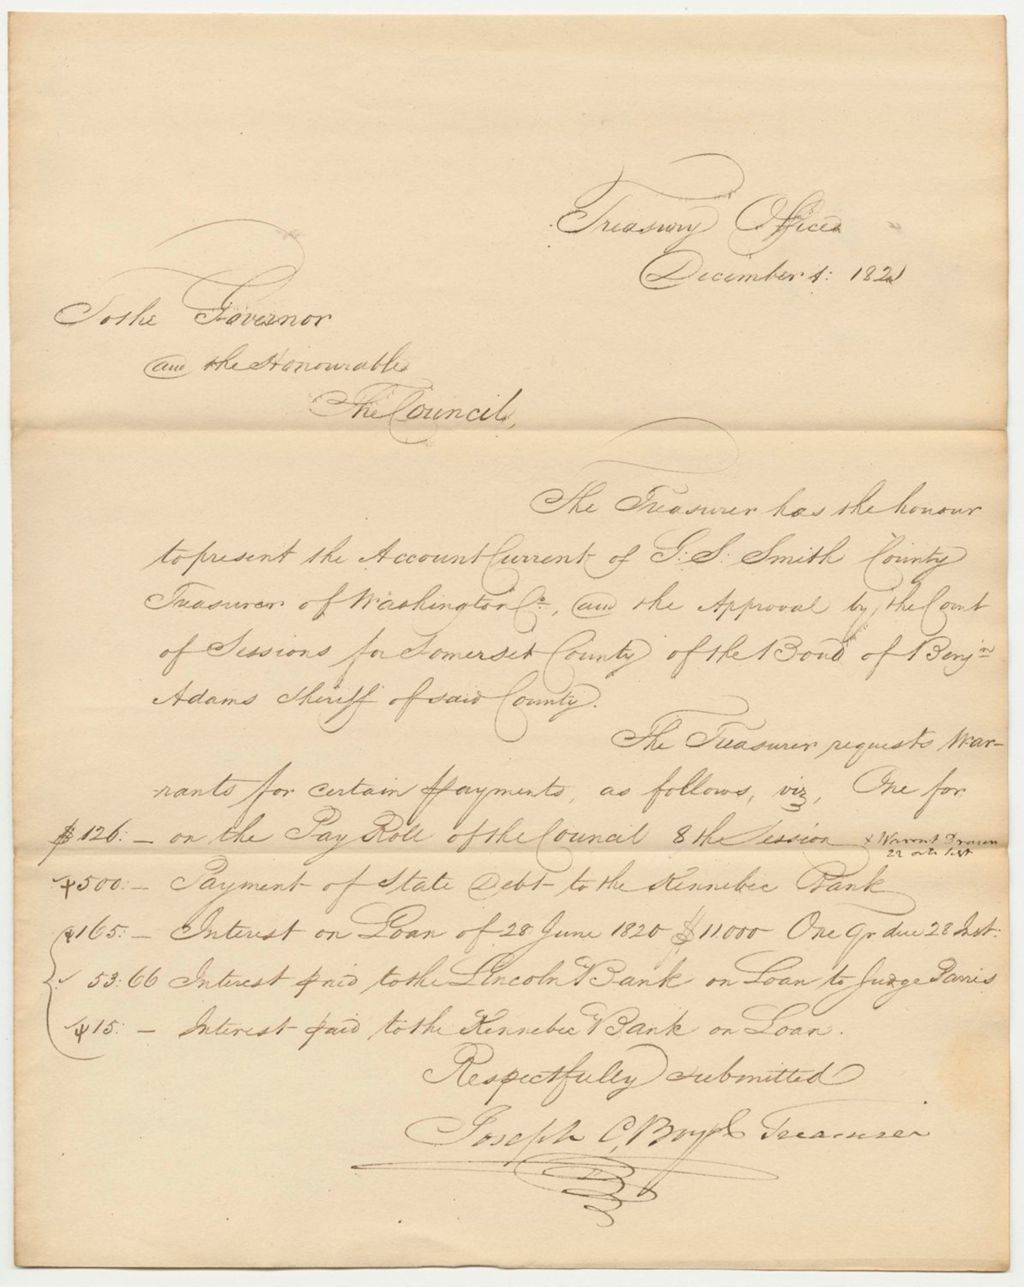 Treasury Office
December 1: 1821
To the Governor
and the Honourable
The Council,
The Treasurer has the honour
to present the Account Current of G. S. Smith County
Treasurer of Washington Co, and the Approval by the Court
of Sessions for Somerset County of the Bond of Benjn
Adams Sheriff of said County.
The Treasurer requests War-
rants for certain payments, as follows, viz, One for
$126:— on the Pay Roll of the Council 8 the Session x Warrant Drawn
22
$500:— Payment of State Debt to the Kennebec Bank
$165:— Interest on Loan of 28 June 1820 $11000 One qr due 28 Inst:
53:66 Interest paid to the Lincoln Bank on Loan to Judge Parris
$15:— Interest paid to the Kennebec Bank on Loan.
Respectfully submitted
Joseph C. Boyd Treasurer